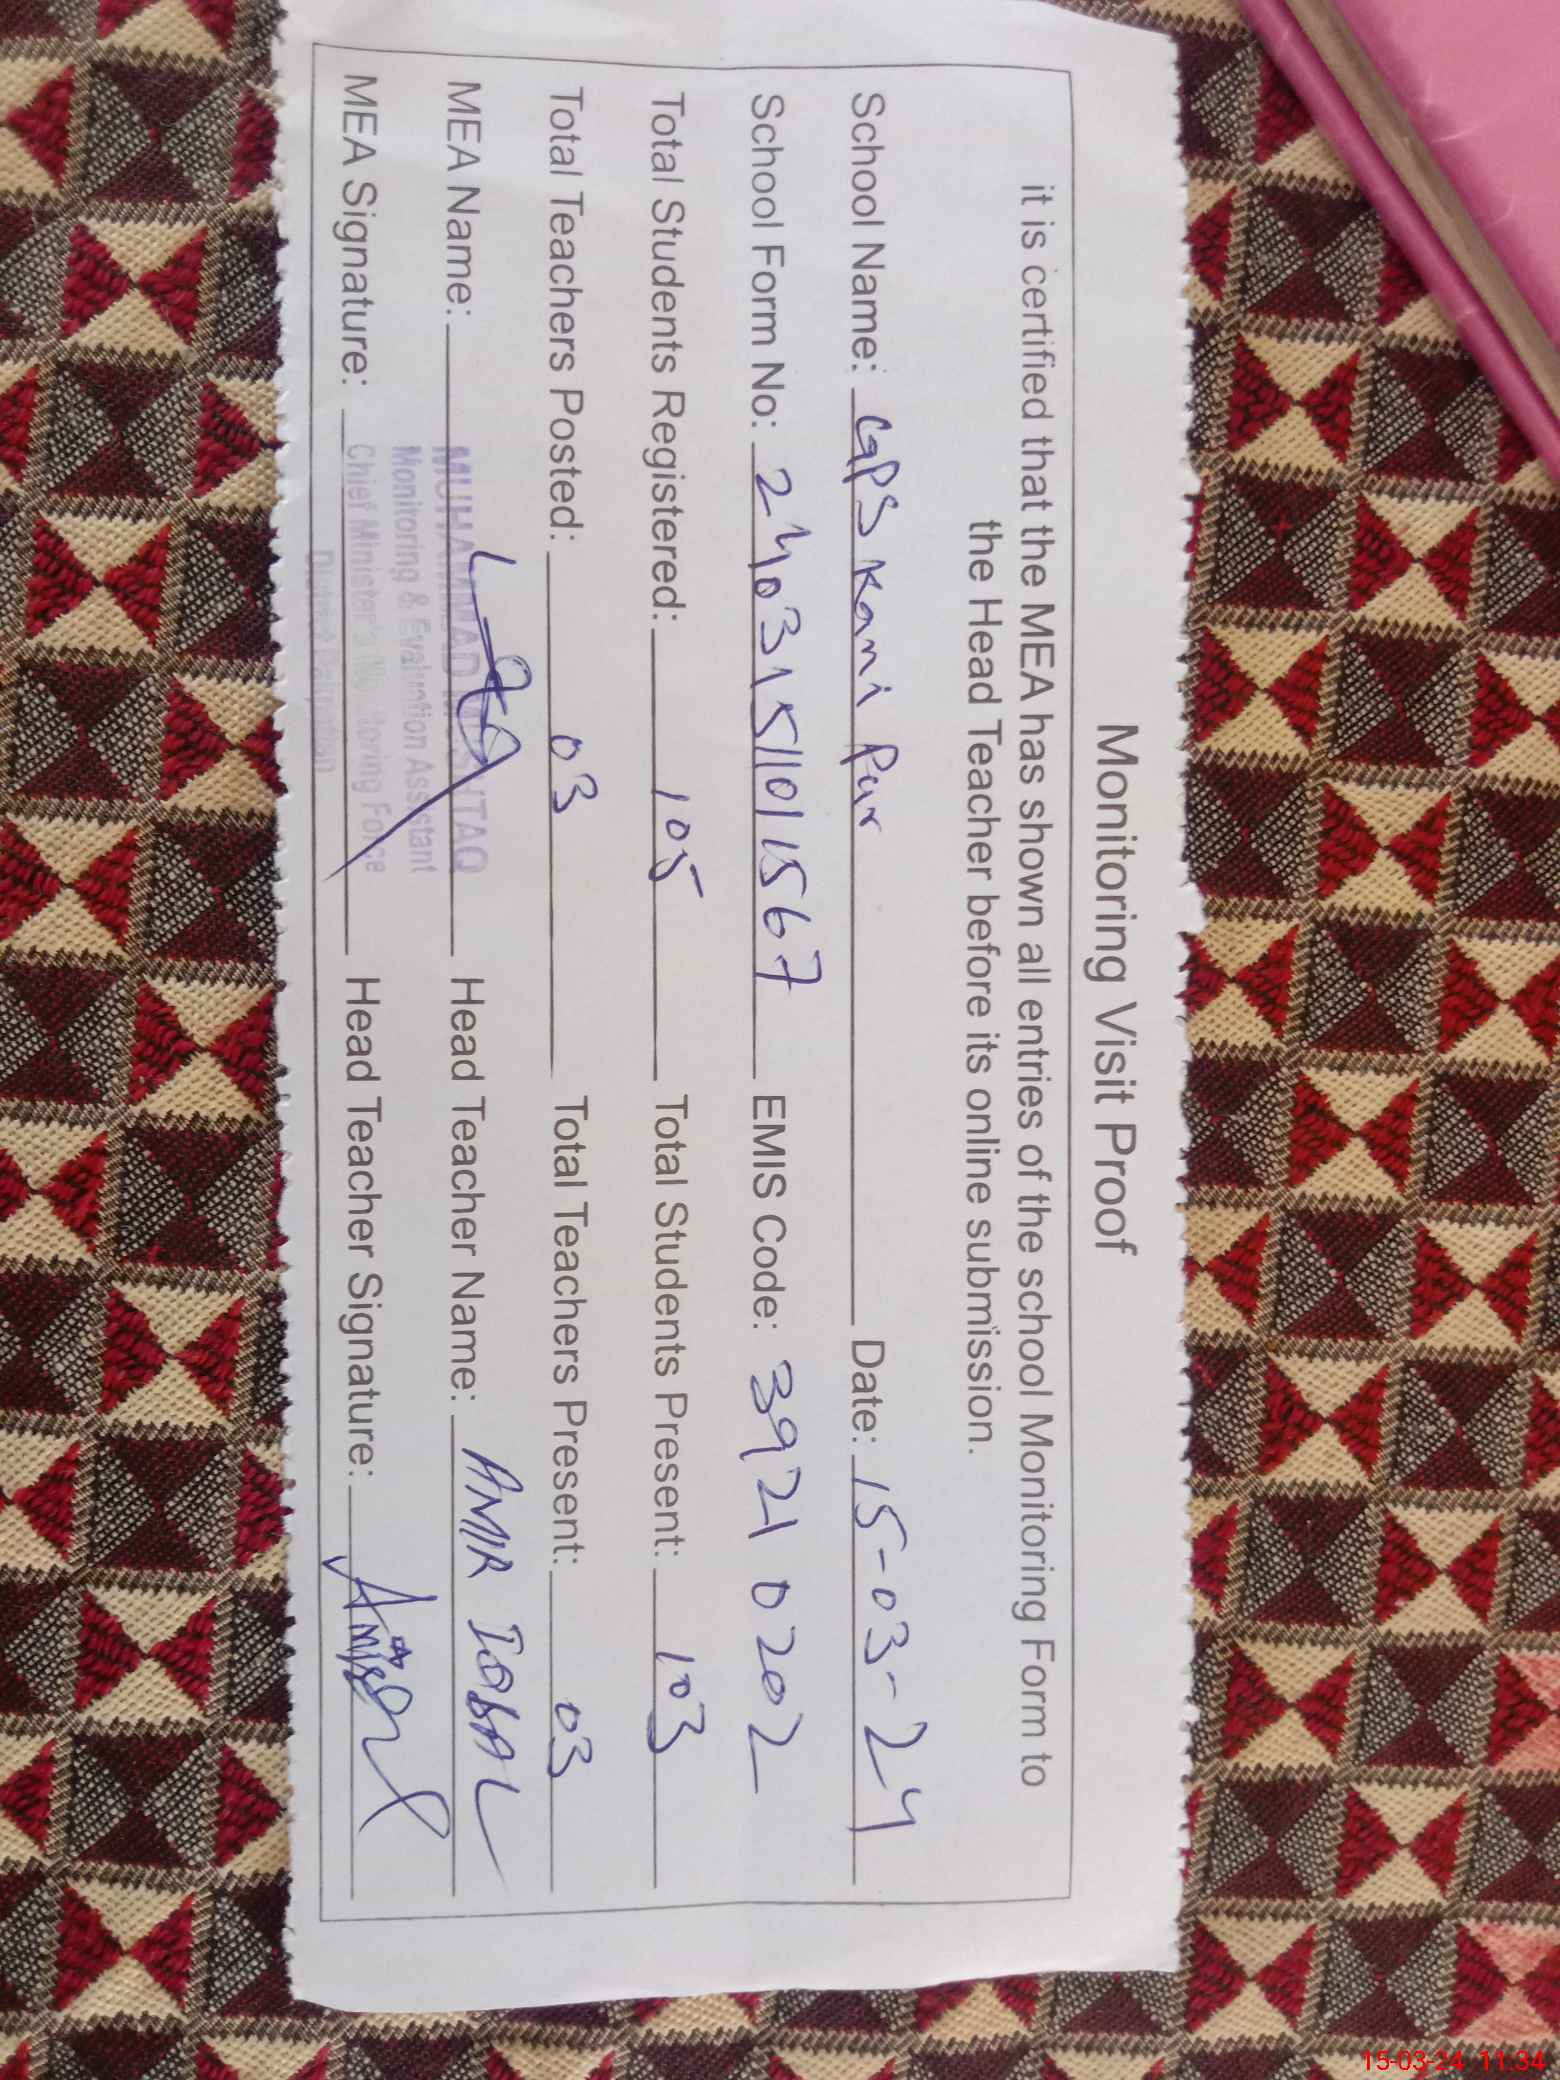 Monitoring Visit Proof
it is certified that the MEA has shown all entries of the school Monitoring Form to
the Head Teacher before its online submission.
School Name: GPS Kani Pur Date: 15-03-24
School Form No: 24031511011567 EMIS Code: 39210202
Total Students Registered: 105 Total Students Present: 103
Total Teachers Posted: 03 Total Teachers Present: 03
MEA Name: MUHAMMAD MUSHTAQ Head Teacher Name: AMIR IQBAL
Monitoring & Evaluation Assistant
MEA Signature: Chief Minister's Monitoring Force Head Teacher Signature:
District Pakpattan
15-03-24 11:34